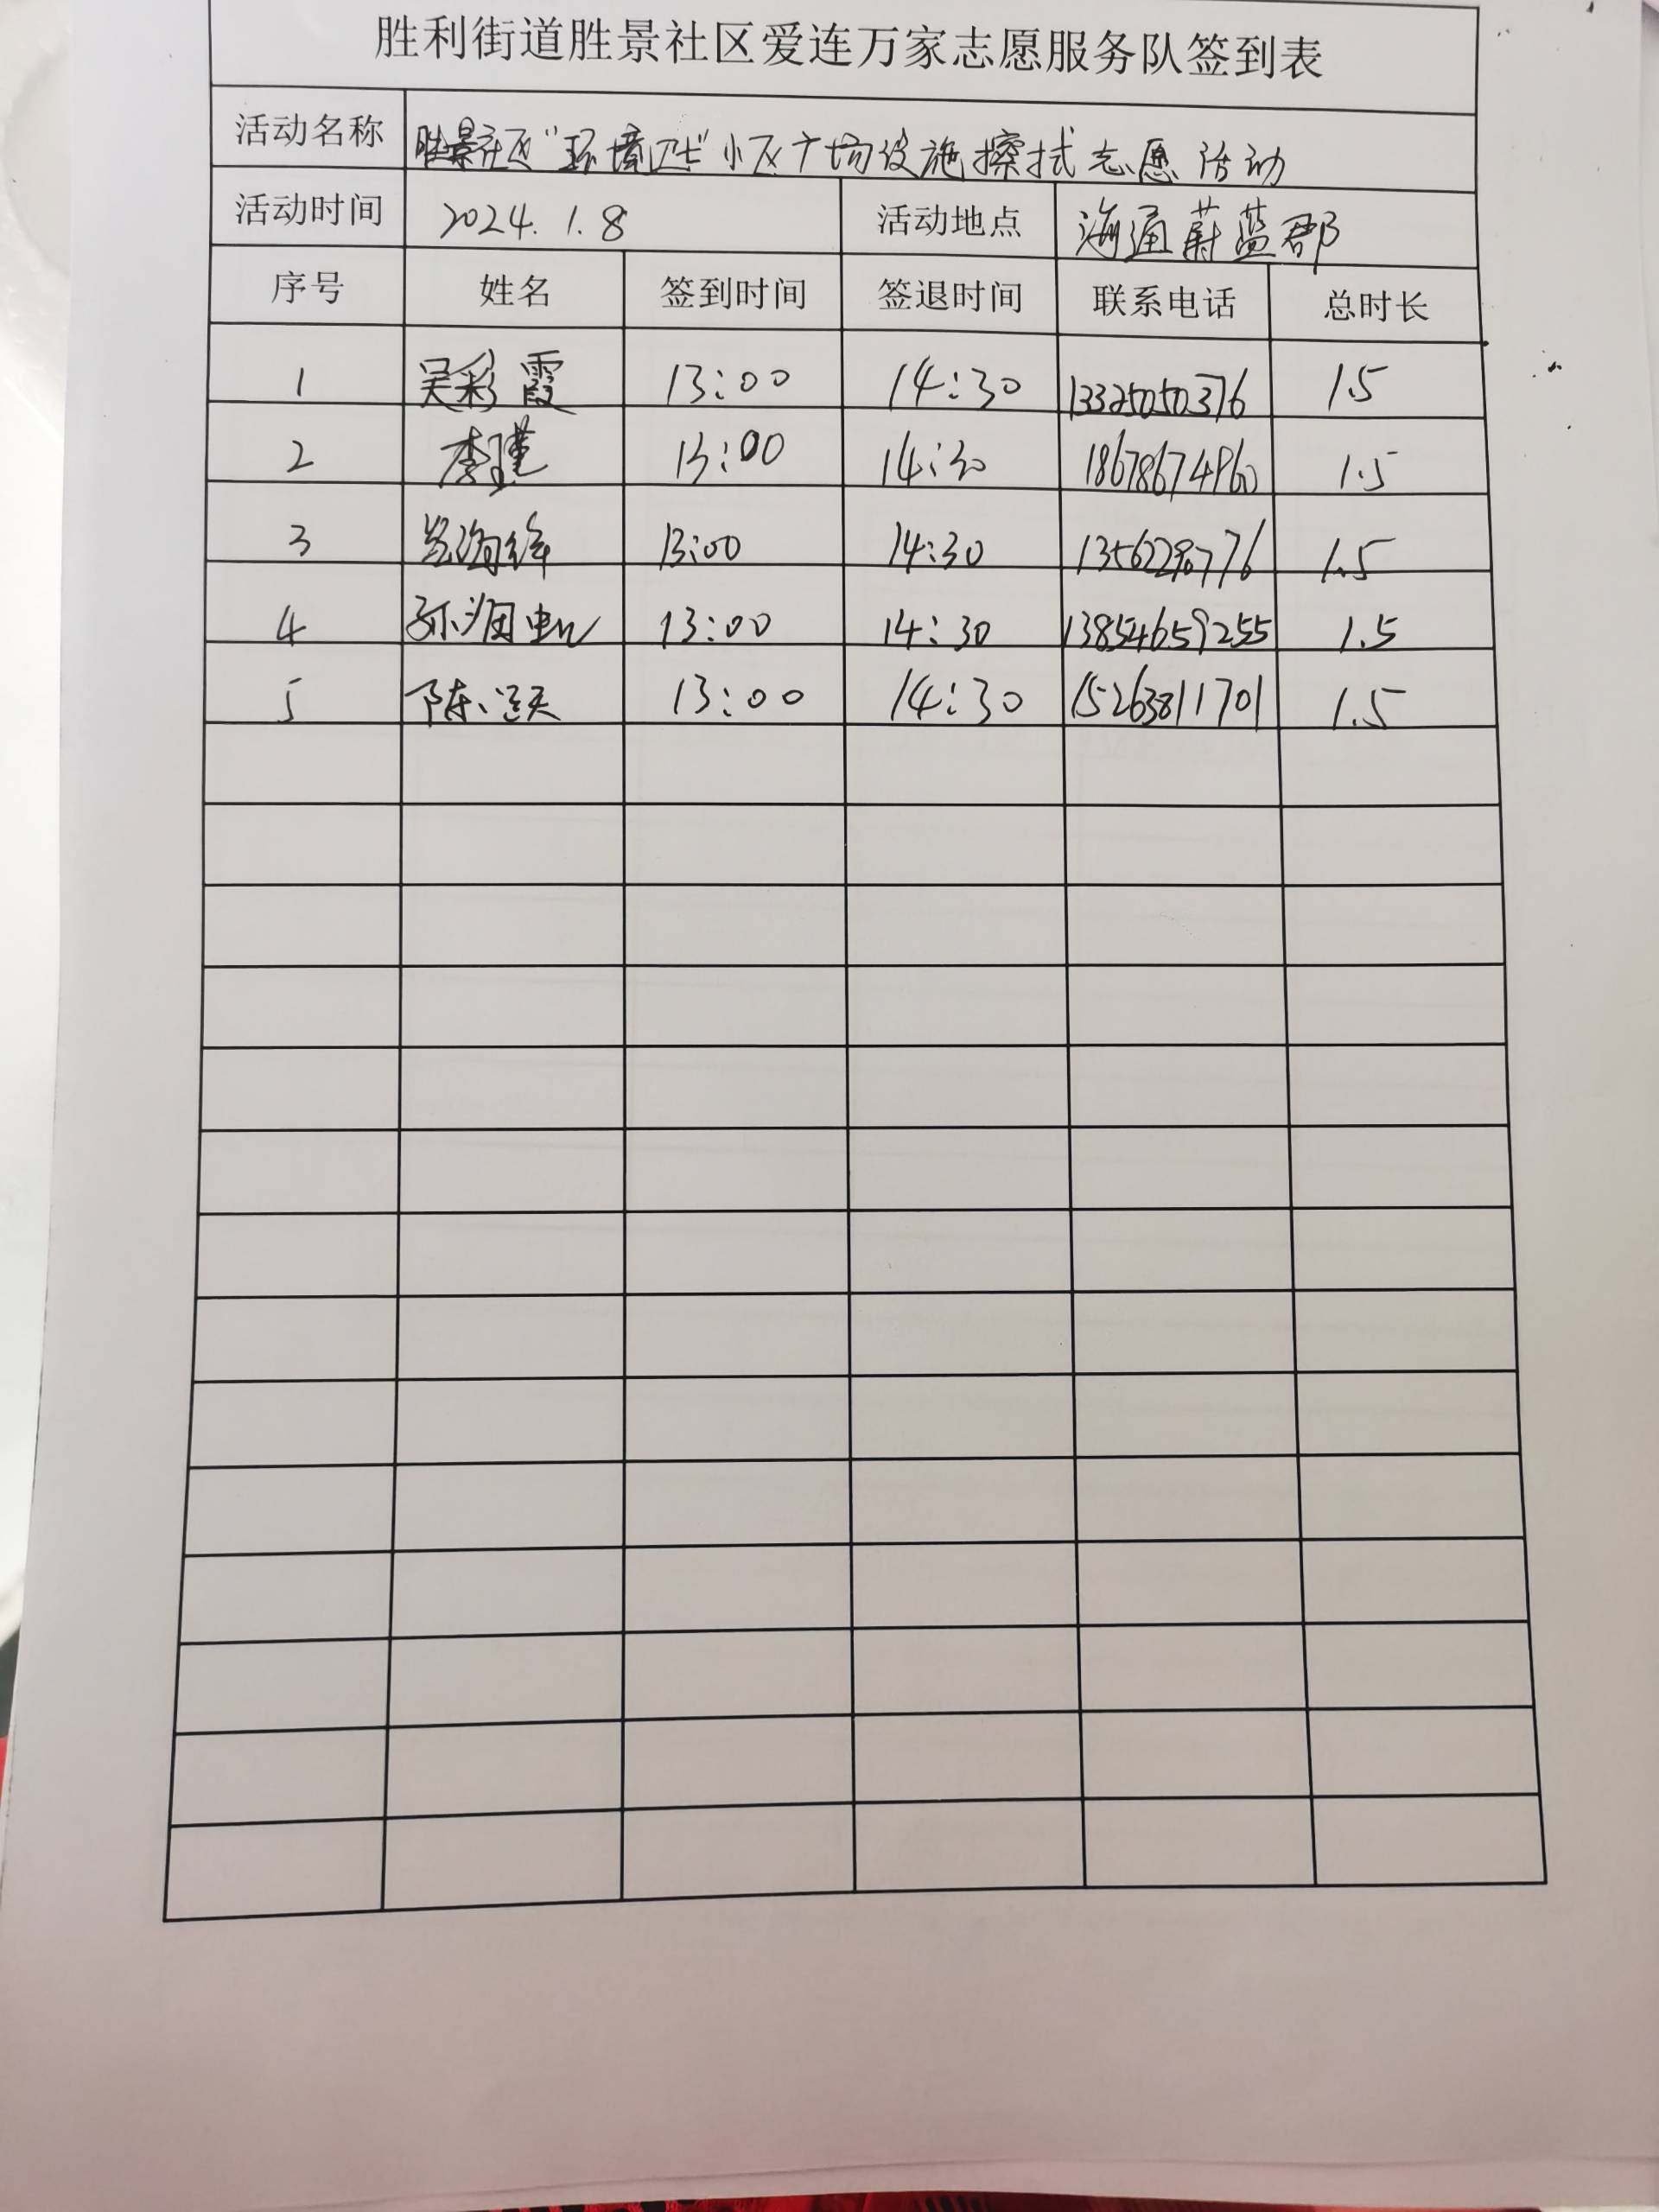 胜利街道胜景社区爱连万家志愿服务队签到表
活动名称 胜景社区"环境卫士"小区广场设施擦拭志愿活动
活动时间 2024.1.8 活动地点 海通蔚蓝郡
序号 姓名 签到时间 签退时间 联系电话 总时长
1 吴彩霞 13:00 14:30 13325050376 1.5
2 李瑾 13:00 14:30 18678674960 1.5
3 13:00 14:30 1.5
4 13:00 14:30 13854659255 1.5
5 陈 13:00 14:30 15263811701 1.5